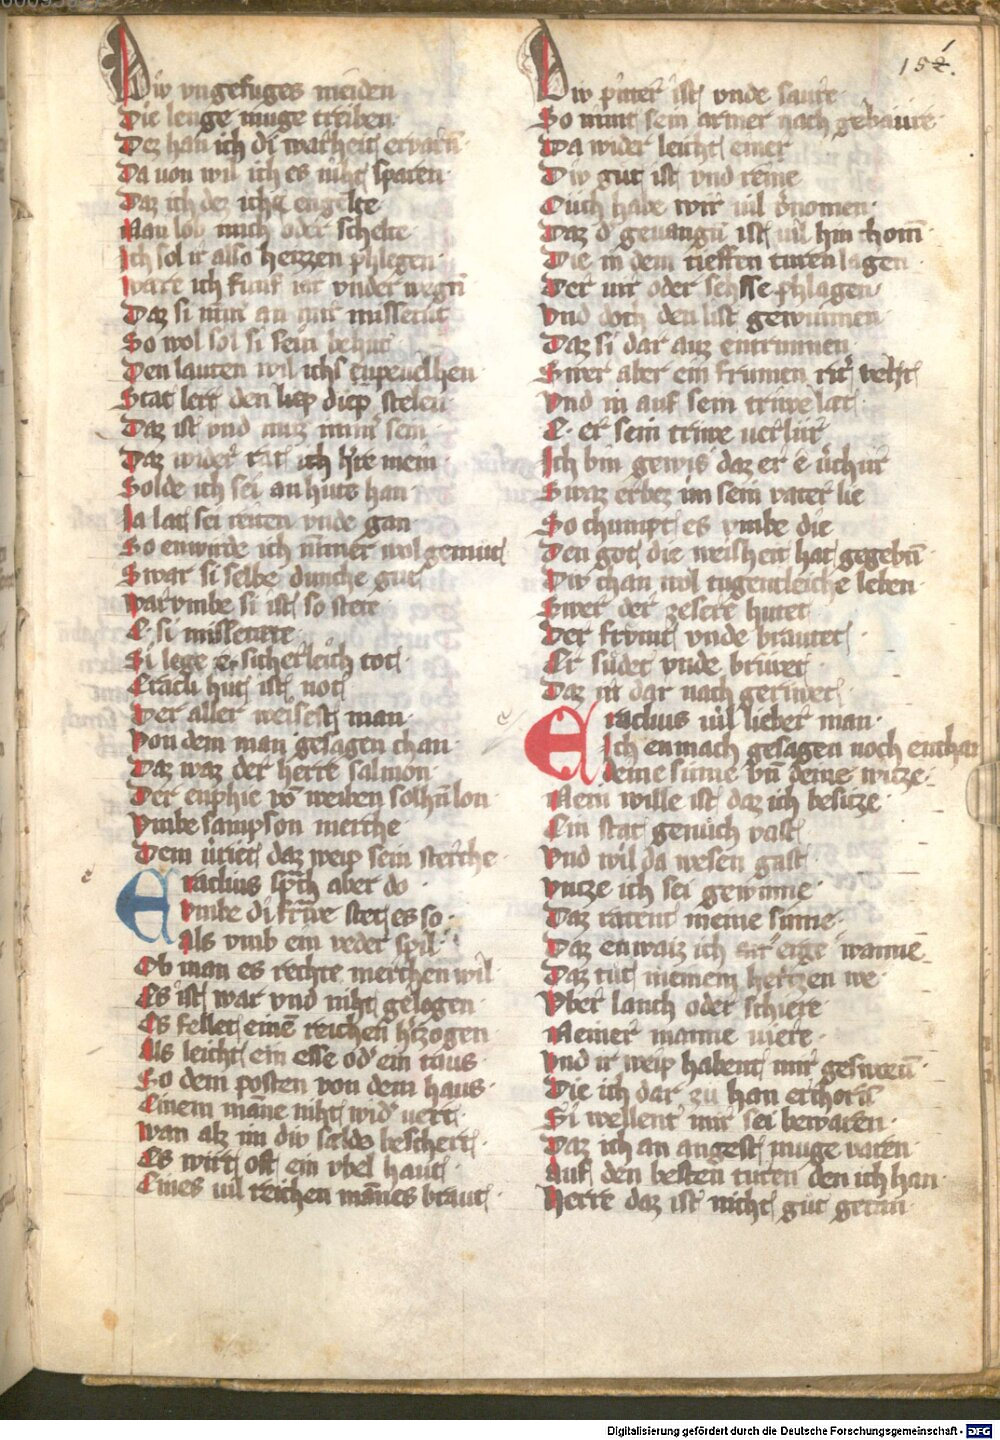 151.
Div vngefuges meiden
Die lenge muge treiben
Dez han ich di warheit ervarn
Da uon wil ich es niht sparen
Daz ich dez icht engelte
Man lob mich oder schelte
Ich sol ir also herzzen phlegen
ware ich funf iar vnder wegn
Daz si mir an nir missetut
So wol sol si sein behut
Den lauten wil ichs enpeuelhen
Stat lert den liep diep stelen
Daz ist vnd muz mir sein
Daz wider rat ich h're mein
Solde ich sei an hute han
Ia lat sei reiten vnde gan
So enwirde ich nimer wol gemut
Swar si selbe dunche gut
warvmbe si ist so stete
E si missetete
Si lege e sicherleich tot
Eracli hut ist not
Der aller weisest man
Von dem man gesagen chan
Daz waz der herre salmon
Der enphie vō weiben solhn lon
Vmbe sampson merche
Dem uriet daz weip sein sterche
e
Eraclius sprach aber do
Vmbe di frawe stet es so
Als vmb ein veder spil
Ob man es rechte merchen wil
Es ist war vnd niht gelogen
Es fellet einē reichen h'zogen
Als leicht ein esse od' ein raus
So dem posten von dem haus
Einem māne niht wid' uert
wan alz im div salde beschert
Es wirt oft ein vbel haut
Eines uil reichen mānes braut
Div pitter ist vnde saure
So nimt sein armer nach gebaure
Da wider leicht einer
Div gut ist vnd reine
Ouch habe wir uil v'nomen
Daz d' geuangn ist uil hin chom
Die in dem tieffen turen lagen
Der uir oder sehsse phlagen
Vnd doch den list gewunnen
Daz si dar auz entrunnen
Swer aber ein frumen rit' vecht
Vnd in auf sein triwe lat
E er sein triwe uerlur
Ich bin gewis daz er e v'chur
Swaz erbez im sein vater lie
So chumpt es vmbe die
Den got die weisheit hat gegebn
Div chan wol tugentleiche leben
Swer der zesere hutet
Der frumt vnde brautet
Er sudet vnde bruwet
Daz in dar nach geriwet
e
Eraclius uil lieber man
Ich enmach gesagen noch enchan
deine sinne vn̄ deine witze
Mein wille ist daz ich besitze
Ein stat genuch vast
Vnd wil da wesen gast
vntze ich sei gewinne
Daz ratent meine sinne
Daz enwaiz ich wanne
Daz tut meinem hertzen we
Vber lanch oder schiere
Meiner manne uiere
Vnd ir weip habent mir gesworn
Die ich dar zu han erchorn
Si wellent mir sei bewaren
Daz ich an angest muge varen
Auf den besten turen den ich han
Herre daz ist nicht gut getan
Digitalisierung gefördert durch die Deutsche Forschungsgemeinschaft - DFG